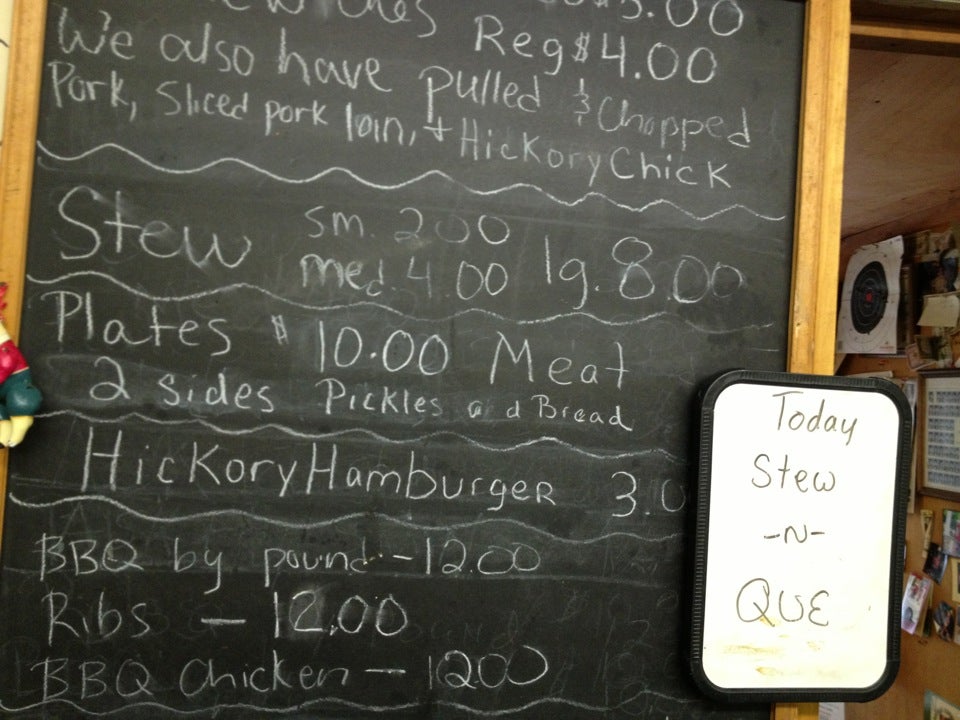 $3.00
Reg $4.00
We also have pulled & Chopped
Pork, Sliced pork loin, + Hickory Chick
Stew sm. 2.00
med. 4.00 lg. 8.00
Plates $10.00 Meat
2 sides Pickles a d Bread
Hickory Hamburger 3.0
BBQ by pound - 12.00
Ribs — 12.00
BBQ Chicken — 12.00
Today
Stew
-N-
QUE